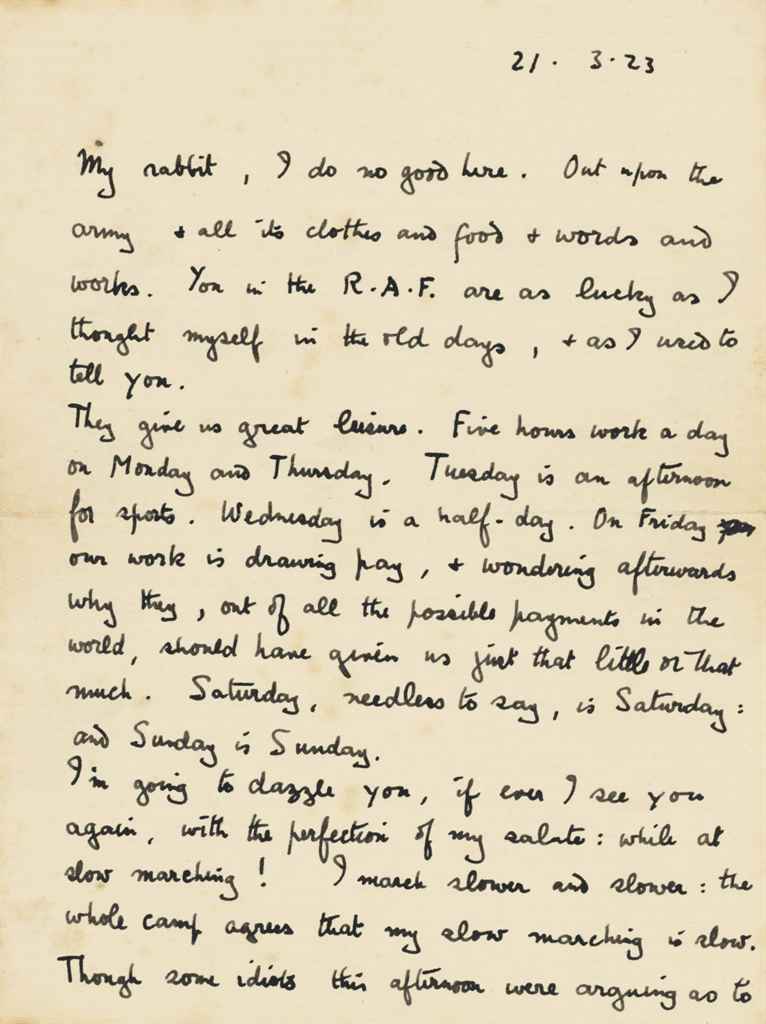 21. 3.23
My rabbit, I do no good here. Out upon the
army & all its clothes and food & words and
works. You in the R.A.F. are as lucky as I
thought myself in the old days, & as I used to
tell you.
They give us great leisure. Five hours work a day
on Monday and Thursday. Tuesday is an afternoon
for sports. Wednesday is a half-day. On Friday
our work is drawing pay, & wondering afterwards
why they, out of all the possible payments in the
world, should have given us just that little or that
much. Saturday, needless to say, is Saturday:
and Sunday is Sunday.
I'm going to dazzle you, if ever I see you
again, with the perfection of my salute: while at
slow marching! I march slower and slower: the
whole camp agrees that my slow marching is slow.
Though some idiots this afternoon were arguing as to